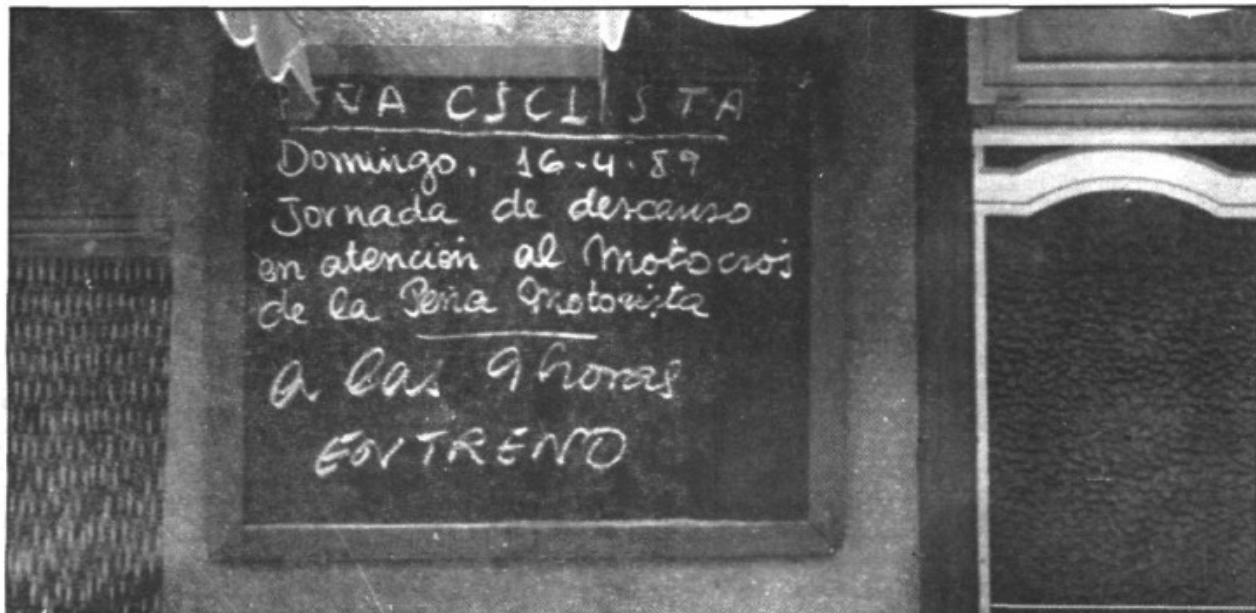 PEÑA CICLISTA
Domingo, 16-4-89
Jornada de descanso
en atención al Motocros
de la Peña Motorista
a las 9 horas
ENTRENO